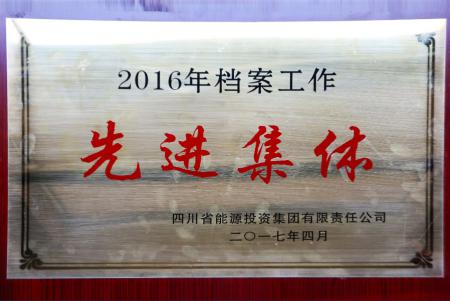 2016年档案工作
先进集体
四川省能源投资集团有限责任公司
二〇一七年四月